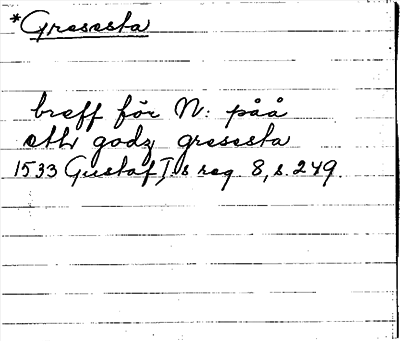 *Gresesta
breff för N: påå
etth godz gresesta
1533 Gustaf I:s reg. 8, s. 249.